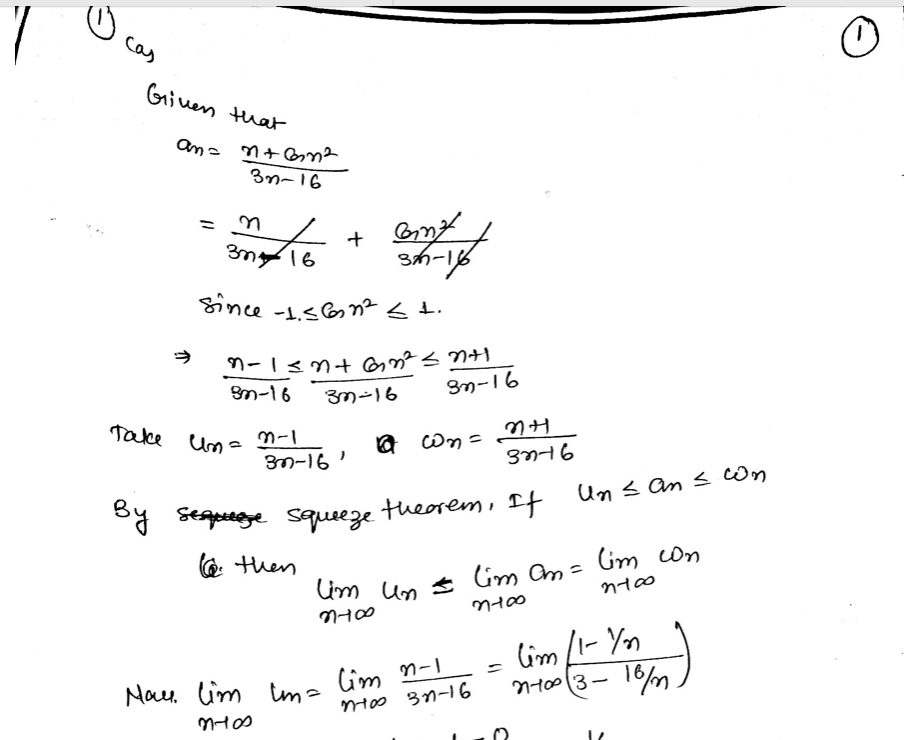 ① Cas ①
Given that
an = n + Cos n² / 3n-16
= n / 3n-16 + Cos n² / 3n-16
Since -1 ≤ Cos n² ≤ 1.
⇒ n-1 / 3n-16 ≤ n + Cos n² / 3n-16 ≤ n+1 / 3n-16
Take Un = n-1 / 3n-16 , ωn = n+1 / 3n-16
By squeeze theorem, If Un ≤ an ≤ ωn
then
lim n→∞ Un ≤ lim n→∞ an = lim n→∞ ωn
Now, lim n→∞ Un = lim n→∞ n-1 / 3n-16 = lim n→∞ (1 - 1/n / 3 - 16/n)